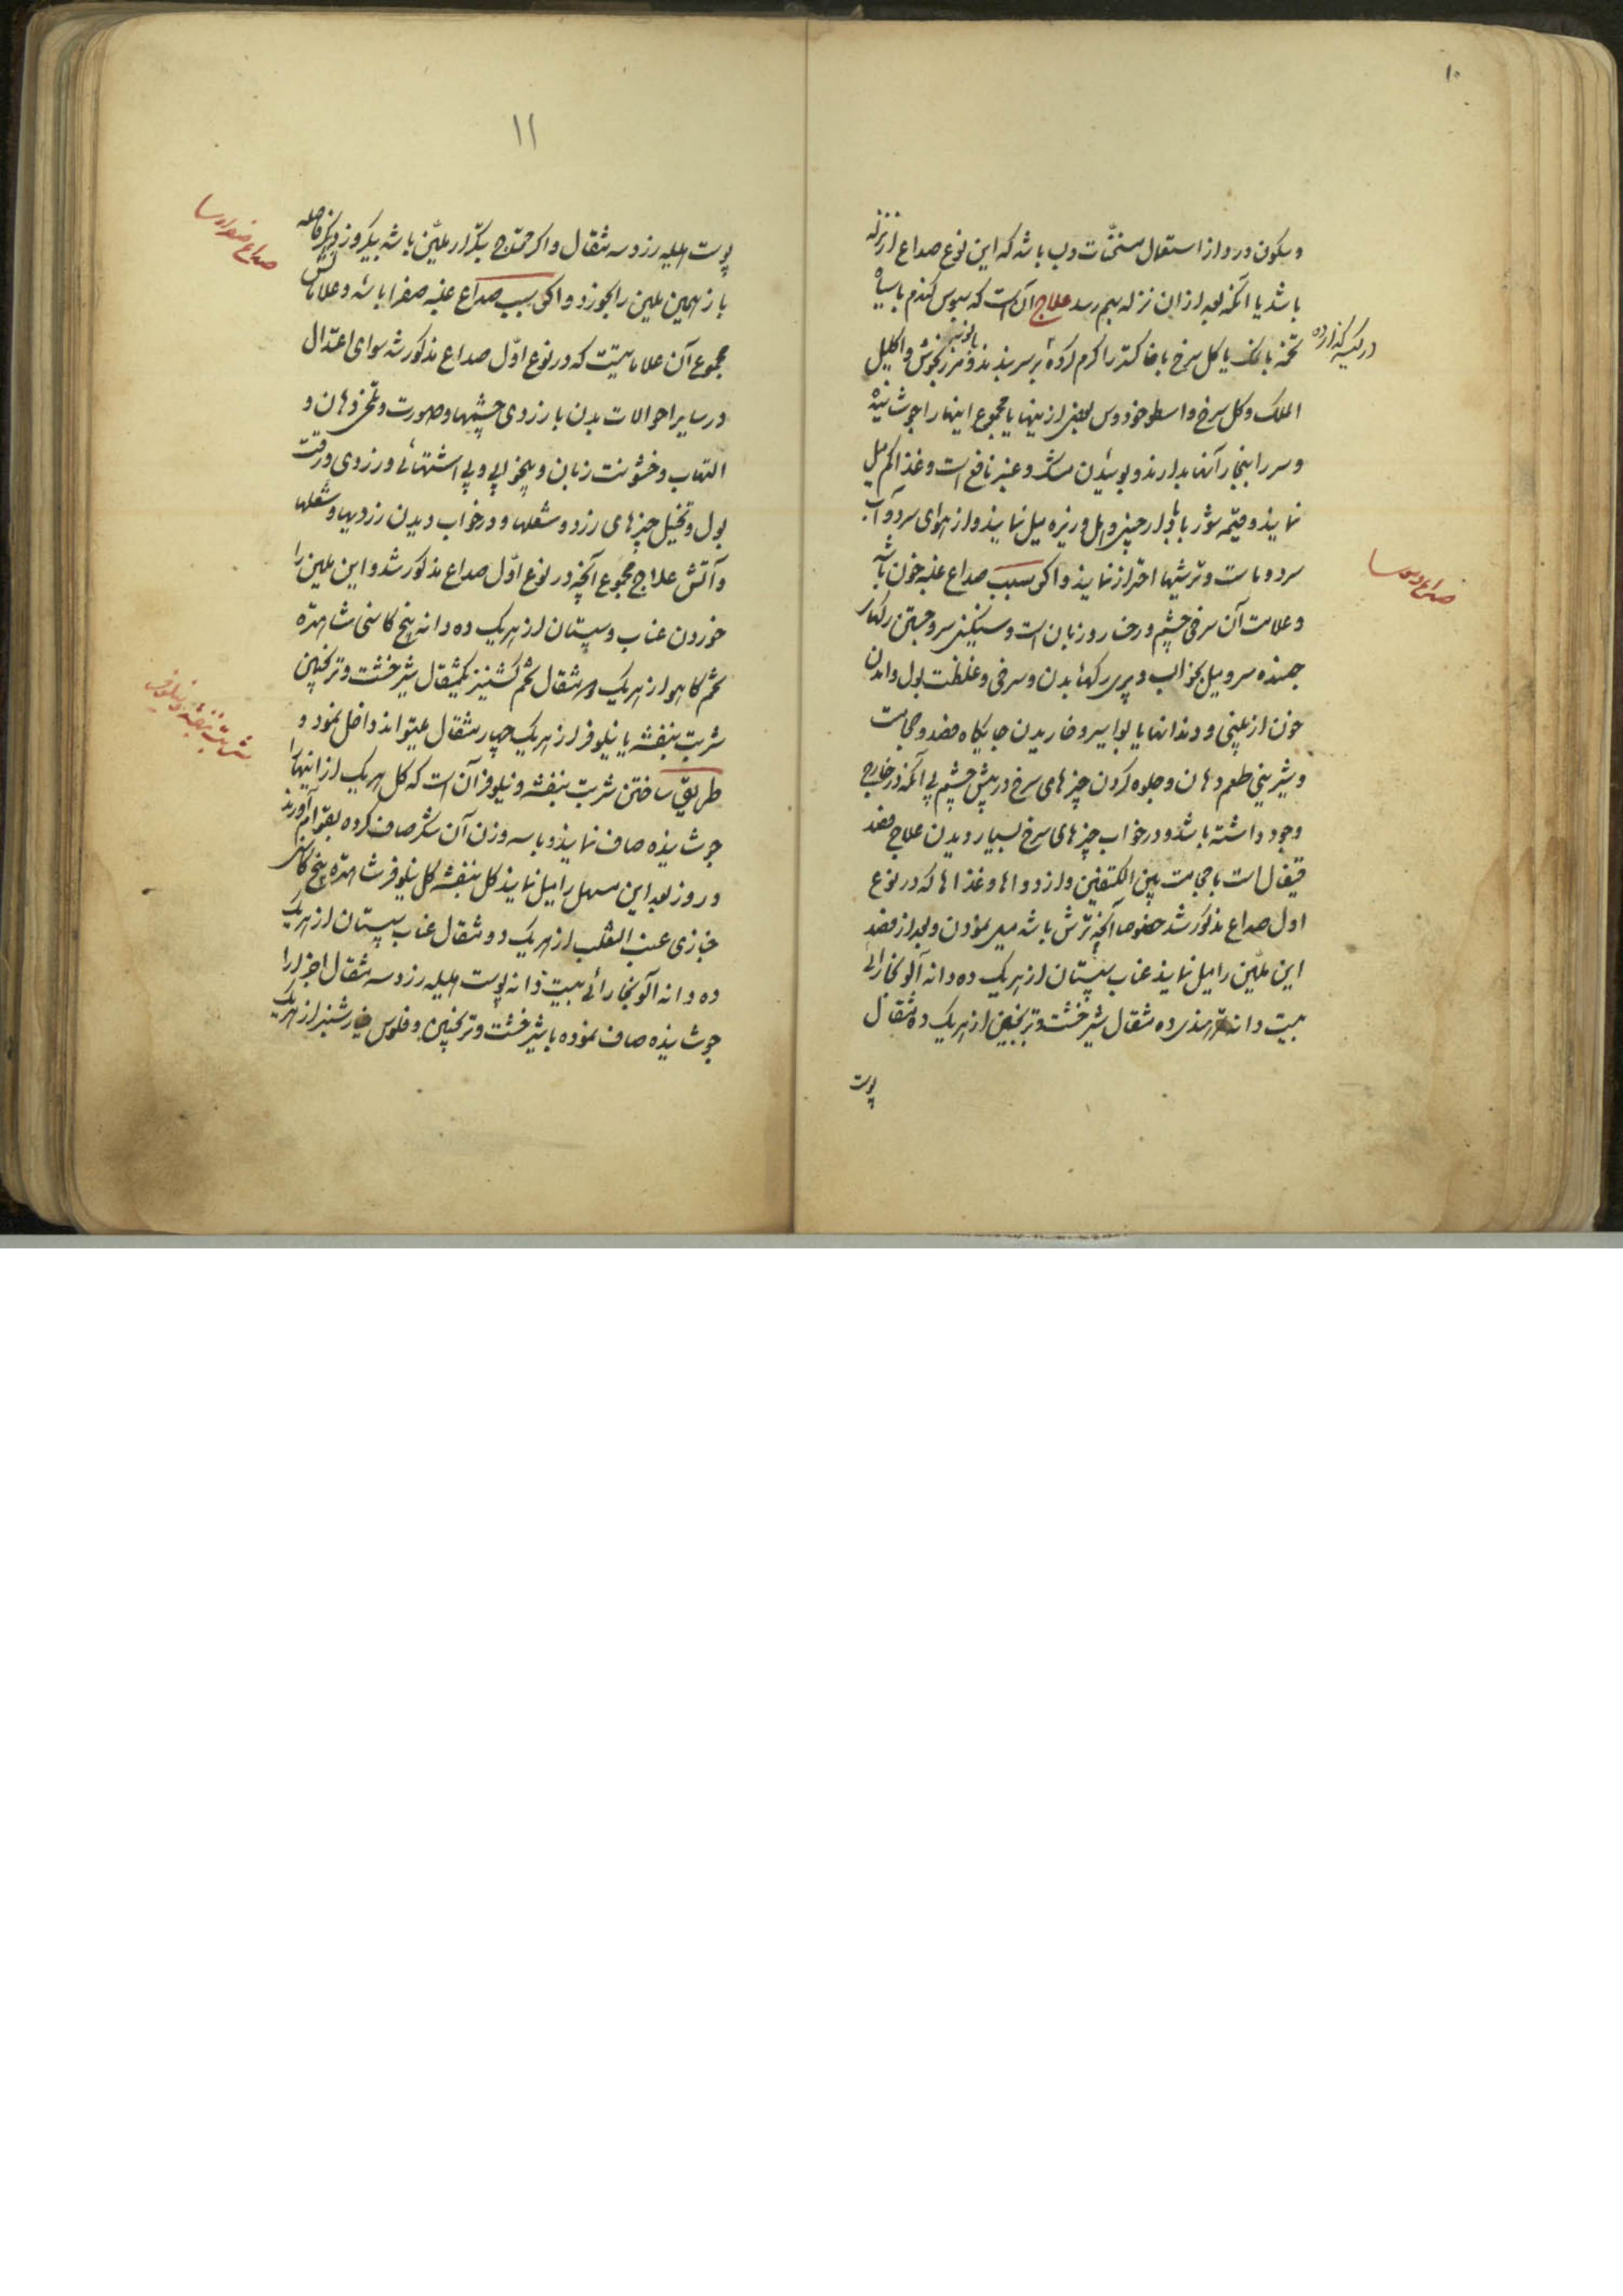 ۱۰
و سکون درد از استعمال مسخنات و بب باشد که این نوع صداع از نزله
باشد یا آنکه بعد از آن نزله بهم رسد علاج آن است که سبوس کندم با سیاه
در کیسه کذارده
تخمه با نمک یا کل سرخ با خاکستر را کرم کرده بر سر بندند و مرزنکوش و اکلیل
بابونه
الملک و کل سرخ و اسطوخودوس بعضی از اینها یا مجموع اینها را جوشانیده
و سر را ببخار آنها بدارند و بوئیدن مشک و عنبر نافع است و غذا کم میل
نمایند و قیمه شوربا با دارچینی و هل و زیره میل نمایند و از هوای سرد و آب
سرد و ماست و ترشیها احتراز نمایند و اکر سبب صداع غلبه خون باشد
صداع دموی
و علامت آن سرخی چشم و رخسار و زبان است و سنکینی سر و جستن رکهای
جهنده سر و میل بخواب و پری رکهای بدن و سرخی و غلظت بول و آمدن
خون از بینی و دندانها یا بواسیر و خاریدن جایکاه فصد و حجامت
و شیرینی طعم دهان و جلوه کردن چیزهای سرخ در پیش چشم بی آنکه در خارج
وجود داشته باشد و در خواب چیزهای سرخ بسیار دیدن علاج فصد
قیفال است یا حجامت بین الکتفین و از دواها و غذاها که در نوع
اول صداع مذکور شد خصوصا آنچه ترش باشد میل نمودن و بعد از فصد
این ملین را میل نمایند عناب سپستان از هریک ده دانه آلو بخارائی
بیست دانه تمر هندی ده مثقال شیرخشت و ترنجبین از هریک ده مثقال
پوست
۱۱
پوست هلیله زرد سه مثقال و اکر محتاج بتکرار ملین باشد بیکروز دیکر فاصله
باز همین ملین را بخورد و اکر سبب صداع غلبه صفرا باشد و علاماتش
صداع صفراوی
مجموع آن علاماتیست که در نوع اول صداع مذکور شد سوای اعتدال
در سایر احوالات بدن با زردی چشمها و صورت و تلخی دهان و
التهاب و خشونت زبان و بیخوابی و بی اشتهائی و زردی و رقت
بول و تخیل چیزهای زرد و شعلها و در خواب دیدن زردیها و شعلها
و آتش علاج مجموع آنچه در نوع اول صداع مذکور شد و این ملین را
خوردن عناب و سپستان از هریک ده دانه بیخ کاسنی شاهتره
تخم کاهو از هریک دو مثقال تخم کشنیز یکمثقال شیرخشت و ترنجبین
شربت بنفشه یا نیلوفر از هریک چهار مثقال میتواند داخل نمود و
شربت بنفشه و نیلوفر
طریق ساختن شربت بنفشه و نیلوفر آن است که کل هریک از اینها را
جوشانیده صاف نمایند و با سه وزن آن شکر صاف کرده بقوام آورند
و روز بعد این مسهل را میل نمایند کل بنفشه کل نیلوفر شاهتره بیخ کاسنی
خبازی عنب الثعلب از هریک دو مثقال عناب سپستان از هریک
ده دانه آلو بخارائی بیست دانه پوست هلیله زرد سه مثقال اجزا را
جوشانیده صاف نموده با شیرخشت و ترنجبین و فلوس خیارشنبر از هریک